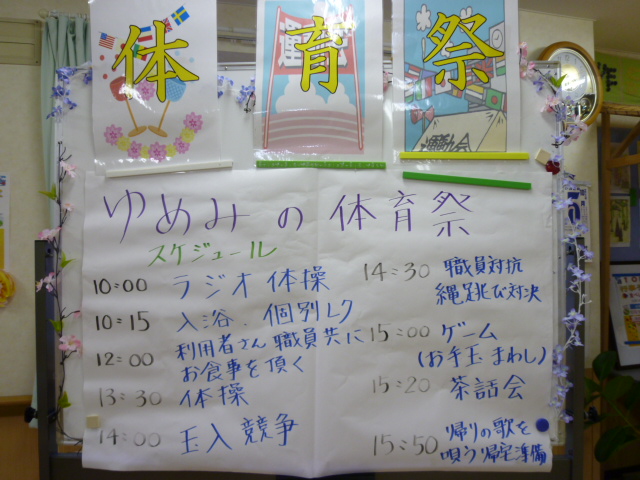 体育祭
運動会
ゆめみの体育祭
スケジュール
10:00 ラジオ体操
10:15 入浴、個別レク
12:00 利用者さん職員共に
お食事を頂く
13:30 体操
14:00 玉入競争
14:30 職員対抗
縄跳び対決
15:00 ゲーム
(お手玉まわし)
15:20 茶話会
15:50 帰りの歌を
唄う帰宅準備